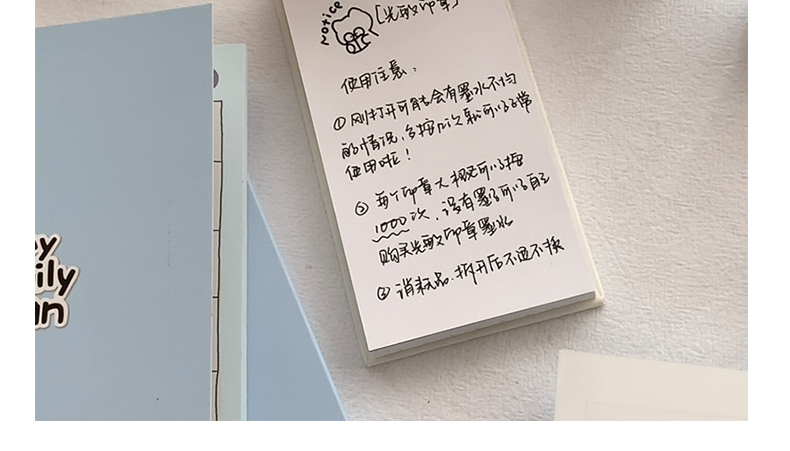 Notice
[光敏印章]
使用注意：
① 刚打开可能会有墨水不均
的情况，多按几次就可以正常
使用啦！
② 每个印章大概可以按
1000次，没有墨了可以自主
购买光敏印章墨水
③ 消耗品，拆开后不退不换